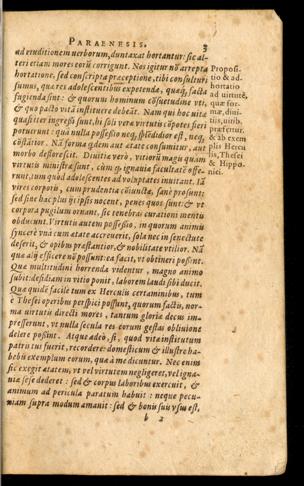 PARAENESIS. 3
ad eruditionem uerborum, duntaxat hortantur: sic al-
teri etiam mores eorũ corrigunt. Nos igitur nõ arrepta
hortatione, sed conscripta præceptione, tibi consulturi
sumus, quæ res adolescentibus expetenda, quæq́; facta
fugienda sint: & quorum hominum cõsuetudine vti,
& quo pacto vitā instituere debeāt. Nam qui hoc vitæ
quasi iter ingressi sunt, hi soli veræ virtutis cōpotes fieri
potuerunt: qua nulla possessio neq; splēdidior est, neq;
cōstātior. Nā forma quidem aut etate consumitur, aut
morbo deflorescit. Diuitiæ verò, vitiorũ magis quàm
virtutis ministræ sunt, cùm & ignauiæ facultatē offe-
runt, tum quòd adolescentes ad voluptates inuitant. Iā
vires corporis, cum prudentia cōiunctæ, sanè prosunt:
sed sine hac plus ijs ipsis nocent, penes quos sunt: & vt
corpora pugilum ornant, sic tenebras curationi mentis
obducunt. Virtutis autem possessio, in quorum animis
syncerè vnà cum ætate accreuerit, sola nec in senectute
deserit, & opibus præstantior, & nobilitate vtilior. Nā
quæ alij efficere nō possunt: ea facit, vt obtineri possint.
Quæ multitudini horrenda videntur, magno animo
subit: desidiam in vitio ponit, laborem laudi sibi ducit.
Quod quidē facile tum ex Herculis certaminibus, tum
è Thesei operibus perspici possunt, quorum factis, nor-
ma virtutis directi mores, tantum gloriæ decus im-
presserunt, vt nulla secula res eorum gestas obliuione
delere possint. Atque adeo, si, quod vitæ institutum
patris tui fuerit, recordere: domesticum & illustre ha-
bebis exemplum eorum, quæ à me dicuntur. Nec enim
sic exegit ætatem, vt vel virtutem negligeret, vel igna-
uiæ sese dederet: sed & corpus laboribus exercuit, &
animum ad pericula paratum habuit: neque pecu-
niam supra modum amauit: sed & bonis suis vsus est,
b 2
Proposi-
tio & ad-
hortatio
ad uirtutē,
quæ for-
mæ, diui-
tijs, uirib.
præfertur.
& ab exem
plis Hercu
lis, Thesei
& Hippo-
nici.